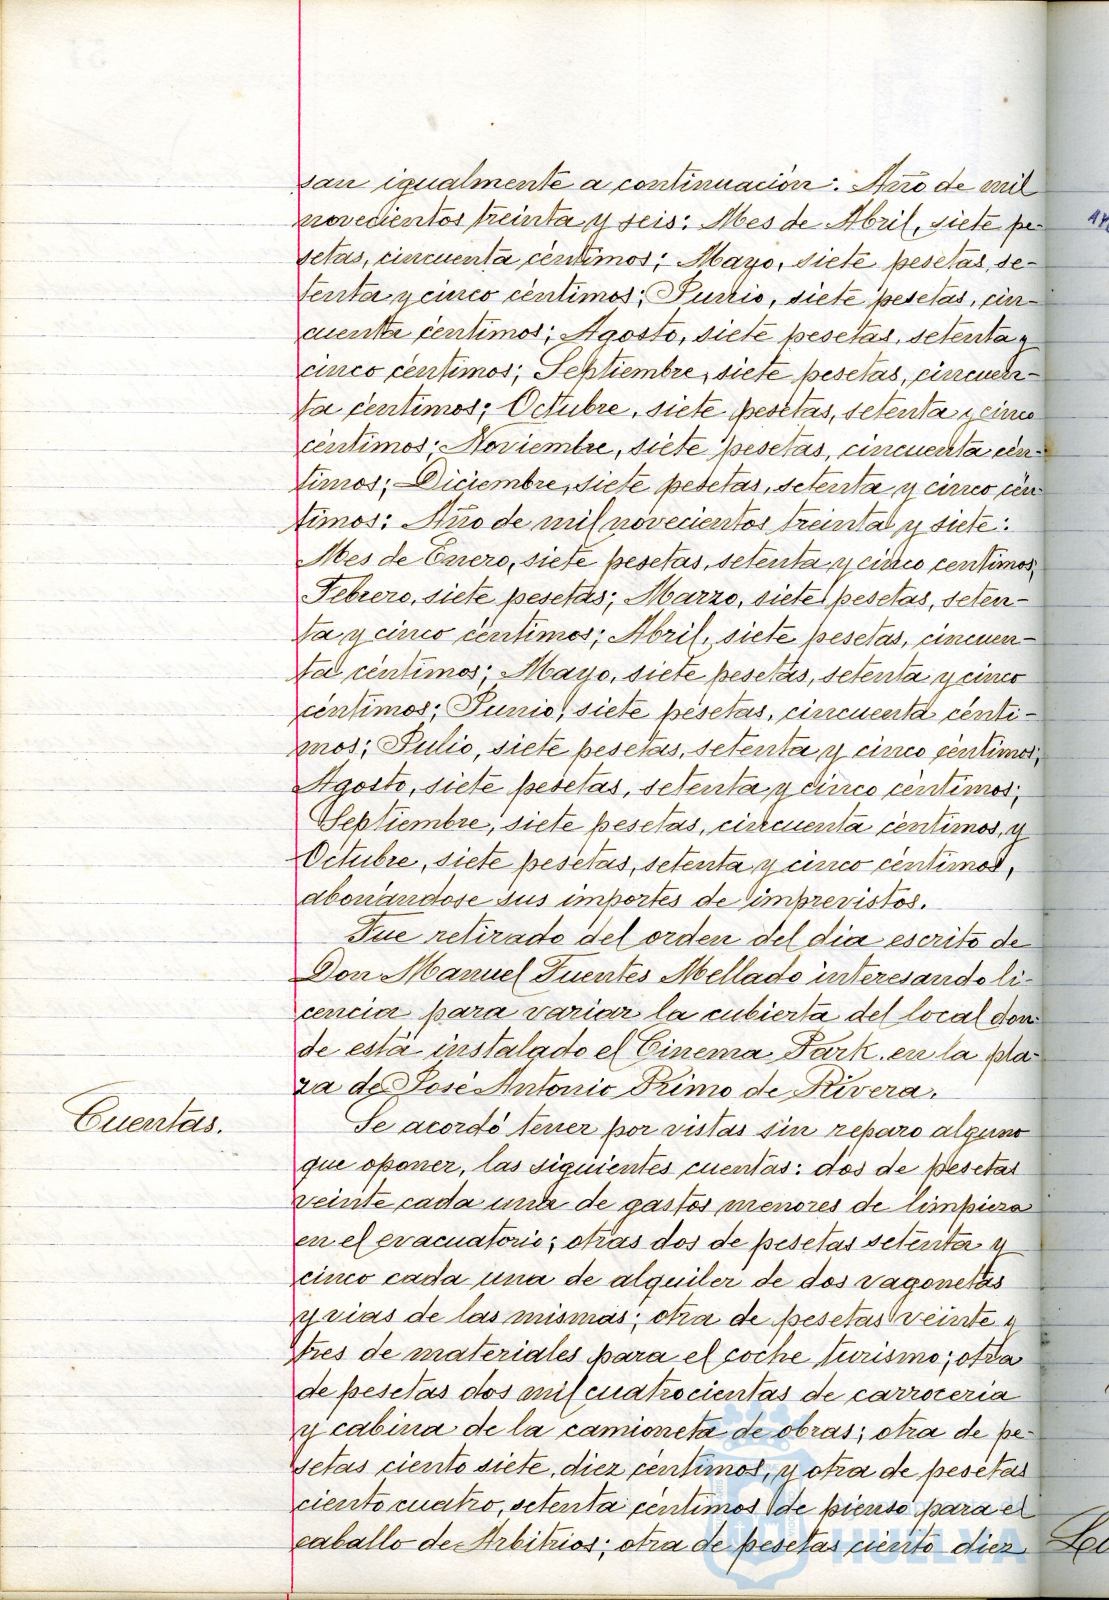 san igualmente a continuación: Año de mil
novecientos treinta y seis: Mes de Abril, siete pe-
setas, cincuenta céntimos; Mayo, siete pesetas, se-
tenta y cinco céntimos; Junio, siete pesetas, cin-
cuenta céntimos; Agosto, siete pesetas, setenta y
cinco céntimos; Septiembre, siete pesetas, cincuen-
ta céntimos; Octubre, siete pesetas, setenta y cinco
céntimos; Noviembre, siete pesetas, cincuenta cén-
timos; Diciembre, siete pesetas, setenta y cinco cén-
timos: Año de mil novecientos treinta y siete:
Mes de Enero, siete pesetas, setenta y cinco centimos;
Febrero, siete pesetas; Marzo, siete pesetas, seten-
ta y cinco céntimos; Abril, siete pesetas, cincuen-
ta céntimos; Mayo, siete pesetas, setenta y cinco
céntimos; Junio, siete pesetas, cincuenta cénti-
mos; Julio, siete pesetas, setenta y cinco céntimos;
Agosto, siete pesetas, setenta y cinco céntimos;
Septiembre, siete pesetas, cincuenta céntimos, y
Octubre, siete pesetas, setenta y cinco céntimos,
abonándose sus importes de imprevistos.
Fue retirado del orden del dia escrito de
Don Manuel Fuentes Mellado interesando li-
cencia para variar la cubierta del local don-
de está instalado el Cinema Park en la pla-
za de José Antonio Primo de Rivera.
Cuentas.
Se acordó tener por vistas sin reparo alguno
que oponer, las siguientes cuentas: dos de pesetas
veinte cada una de gastos menores de limpieza
en el evacuatorio; otras dos de pesetas setenta y
cinco cada una de alquiler de dos vagonetas
y vias de las mismas; otra de pesetas veinte y
tres de materiales para el coche turismo; otra
de pesetas dos mil cuatrocientas de carroceria
y cabina de la camioneta de obras; otra de pe-
setas ciento siete, diez céntimos, y otra de pesetas
ciento cuatro, setenta céntimos de pienso para el
caballo de Arbitrios; otra de pesetas ciento diez
HUELVA